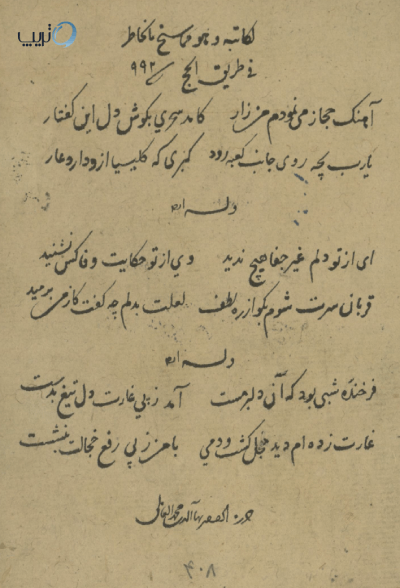 تریپ
لکاتبه و هو مما سنح بالخاطر
فی طریق الحج ۹۹۲
آهنگ حجاز می نمودم من زار کامد سحری بگوش دل این گفتار
یارب بچه روی جانب کعبه رود گبری که کلیسیا ازو دارد عار
وله ایضا
ای از تو دلم غیر جفا هیچ ندید وی از تو حکایت وفا کس نشنید
قربان سرت شوم بگو از ره لطف لعلت بدلم چه گفت کز من برمید
وله ایضا
فرخنده شبی بود که آن دلبر مست آمد ز پی غارت دل تیغ بدست
غارت زده ام دید خجل گشت و دمی با من ز پی رفع خجالت بنشست
حرره بهاء الدین محمد العاملی
۴۰۸